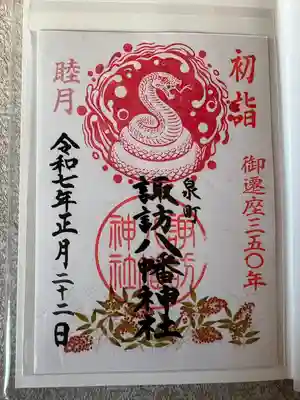 初詣
御遷座三五〇年
泉町
諏訪八幡神社
諏訪
神社
睦月
令和七年正月二十二日